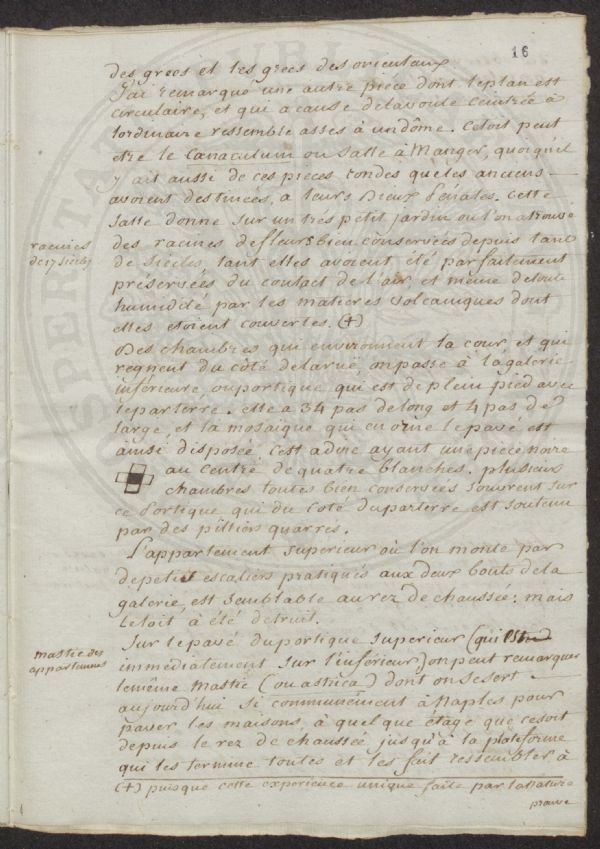 16
des grecs et les grecs des orientaux
J'ai remarqué une autre piece dont leplan est
circulaire, et qui acause delavoute ceintrée à
lordinaire ressemble assés à undôme. Cesoit peut
etre le Cœnaculum ou Salle à Manger, quoiquil
y ait aussi de ces pieces rondes queles anciens
avoient destinées, a leurs Dieux Pénates. Cette
Salle donne sur untrés petit jardin ou l'on atrouvé
racines
des racines defleurs bien conservées depuis tant
de 17 Siécles
de Siécles, tant elles avoient été parfaitement
préservées du contact de l'air, et même detoute
humidité par les matieres volcaniques dont
elles etoient couvertes. (+)
Des chambres qui environnent la cour et qui
regnent du côté delaruë, onpasse à lagalerie
inférieure ouportique, qui est de plein pied avec
leparterre. elle a 34 pas delong et 4 pas de
large, et la mosaique qui enorne lepavé est
ainsi disposée, c'est adire ayant unepiéce noire
au centre dequatre blanches. plusieurs
chambres toutes bien conservées souvrent sur
ce Portique qui du coté duparterre est soutenu
par des pilliers quarrés.
L'appartement superieur où l'on monte par
depetits escaliers pratiqués aux deux bouts dela
galerie, est semblable aurez de chaussée: mais
letoit à été detruit.
mastic des
Sur lepavé duportique superieur (qui
appartemens
immédiatement sur l'inférieur) onpeut remarquer
lemême Mastic (ou astrica) dont onsesert
aujourd'hui si communément à Naples pour
paver les maisons à quelque étage que cesoit
depuis le rez de chaussée jusqu'à la plateforme
qui les termine toutes et les fait ressembler à
(+) puisque cette experience unique faite par lanature
prouve